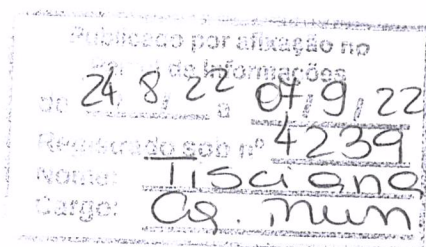 Publicado por afixação no
de Informações
de 24, 8, 22 a 07, 9, 22
Registrado sob nº 4239
Nome: Tisciana
Cargo: Ag. mun